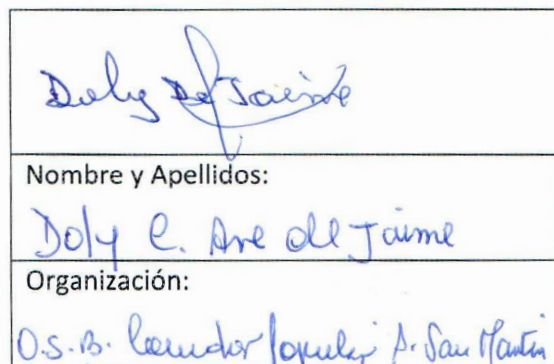 Doly De Jaime
Nombre y Apellidos:
Doly C. Are de Jaime
Organización:
O.S.B. Comedor Popular S. San Martin